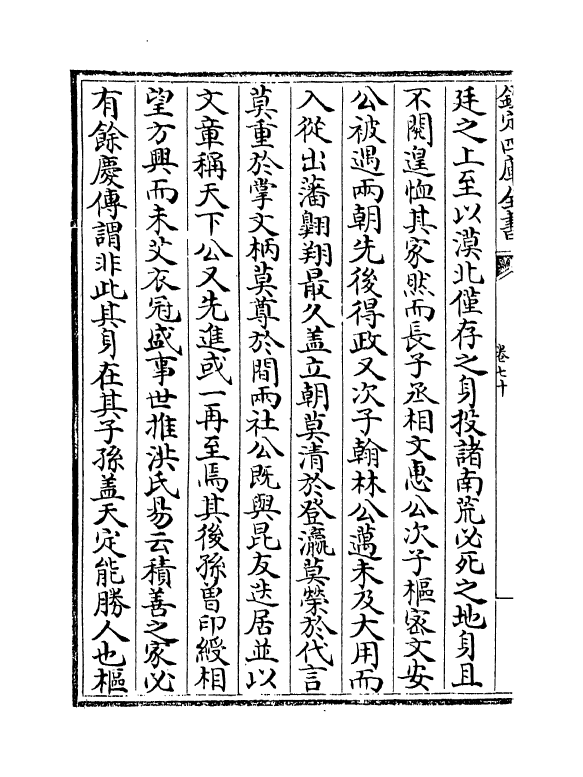 欽定四庫全書
卷七十
廷之上至以漠北僅存之身投諸南荒必死之地身且
不閱遑恤其家然而長子丞相文惠公次子樞宻文安
公被遇兩朝先後得政又次子翰林公邁未及大用而
入從出藩翺翔最久盖立朝莫清於登瀛莫榮於代言
莫重於掌文柄莫尊於開兩社公既與昆友迭居並以
文章稱天下公又先進或一再至焉其後孫曽印綬相
望方興而未艾衣冠盛事世推洪氏易云積善之家必
有餘慶傳謂非此其身在其子孫盖天定能勝人也樞